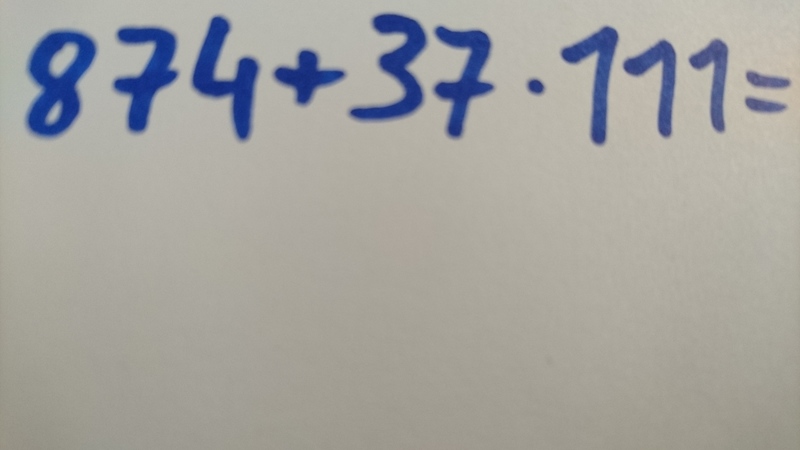 874+37·111=